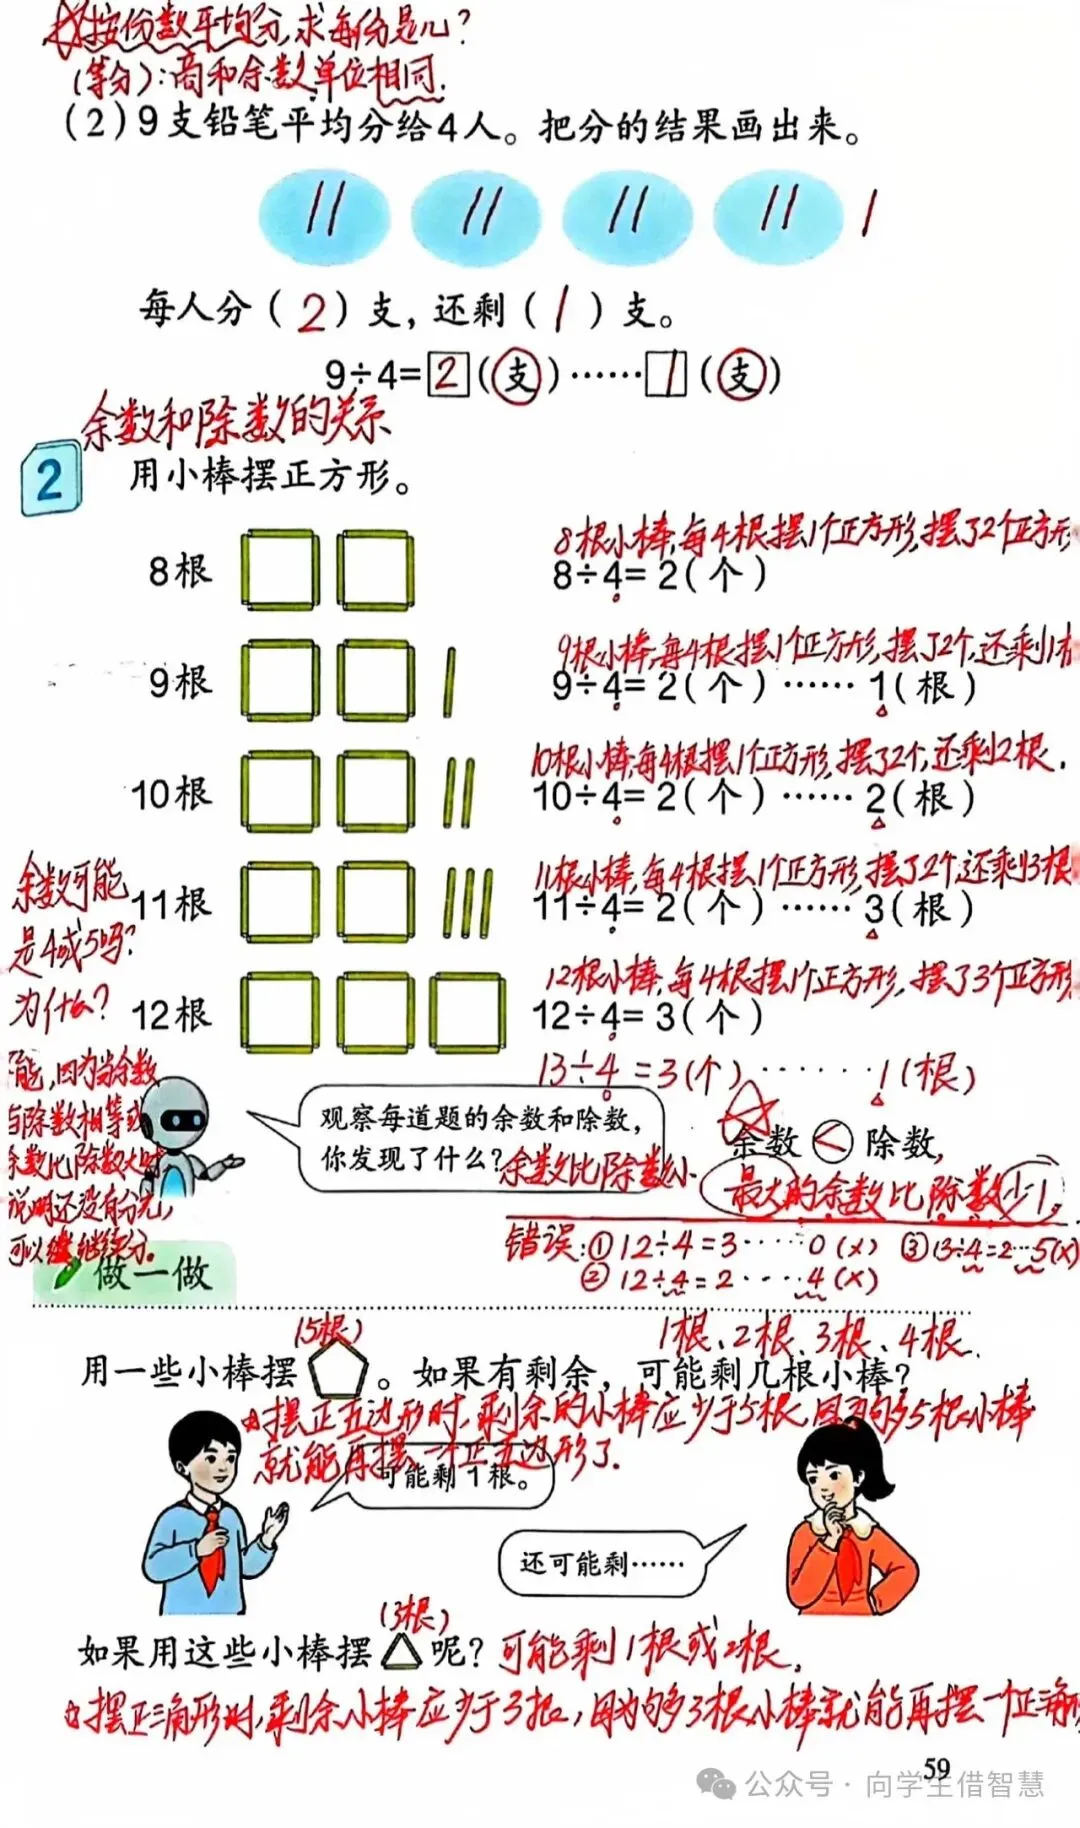 按份数平均分,求每份是几?
(等分):商和余数单位相同.
(2)9支铅笔平均分给4人。把分的结果画出来。
每人分(2)支,还剩(1)支。
9÷4=2(支)……1(支)
余数和除数的关系
2 用小棒摆正方形。
8根小棒,每4根摆1个正方形,摆了2个正方形
8根 8÷4=2(个)
9根小棒,每4根摆1个正方形,摆了2个,还剩1根
9根 9÷4=2(个)……1(根)
10根小棒,每4根摆1个正方形,摆了2个,还剩2根.
10根 10÷4=2(个)……2(根)
11根小棒,每4根摆1个正方形,摆了2个,还剩3根
11根 11÷4=2(个)……3(根)
12根小棒,每4根摆1个正方形,摆了3个正方形
12根 12÷4=3(个)
13÷4=3(个)……1(根)
余数可能
是4或5吗?
为什么?
不能,因为当余数
与除数相等或
余数比除数大时
说明还没有分完,
可以继续分。
观察每道题的余数和除数,
你发现了什么?
余数比除数小
余数<除数,
最大的余数比除数少1.
错误:①12÷4=3……0(×) ③13÷4=2…5(×)
②12÷4=2……4(×)
做一做
(5根) 1根、2根、3根、4根.
用一些小棒摆 。如果有剩余,可能剩几根小棒?
摆正五边形时,剩余的小棒应少于5根,因为够5根小棒
就能再摆一个正五边形了.
可能剩1根。
还可能剩……
(3根)
如果用这些小棒摆 呢?可能剩1根或2根.
摆正三角形时,剩余小棒应少于3根,因为够3根小棒就能再摆一个正三角形
59
公众号·向学生借智慧